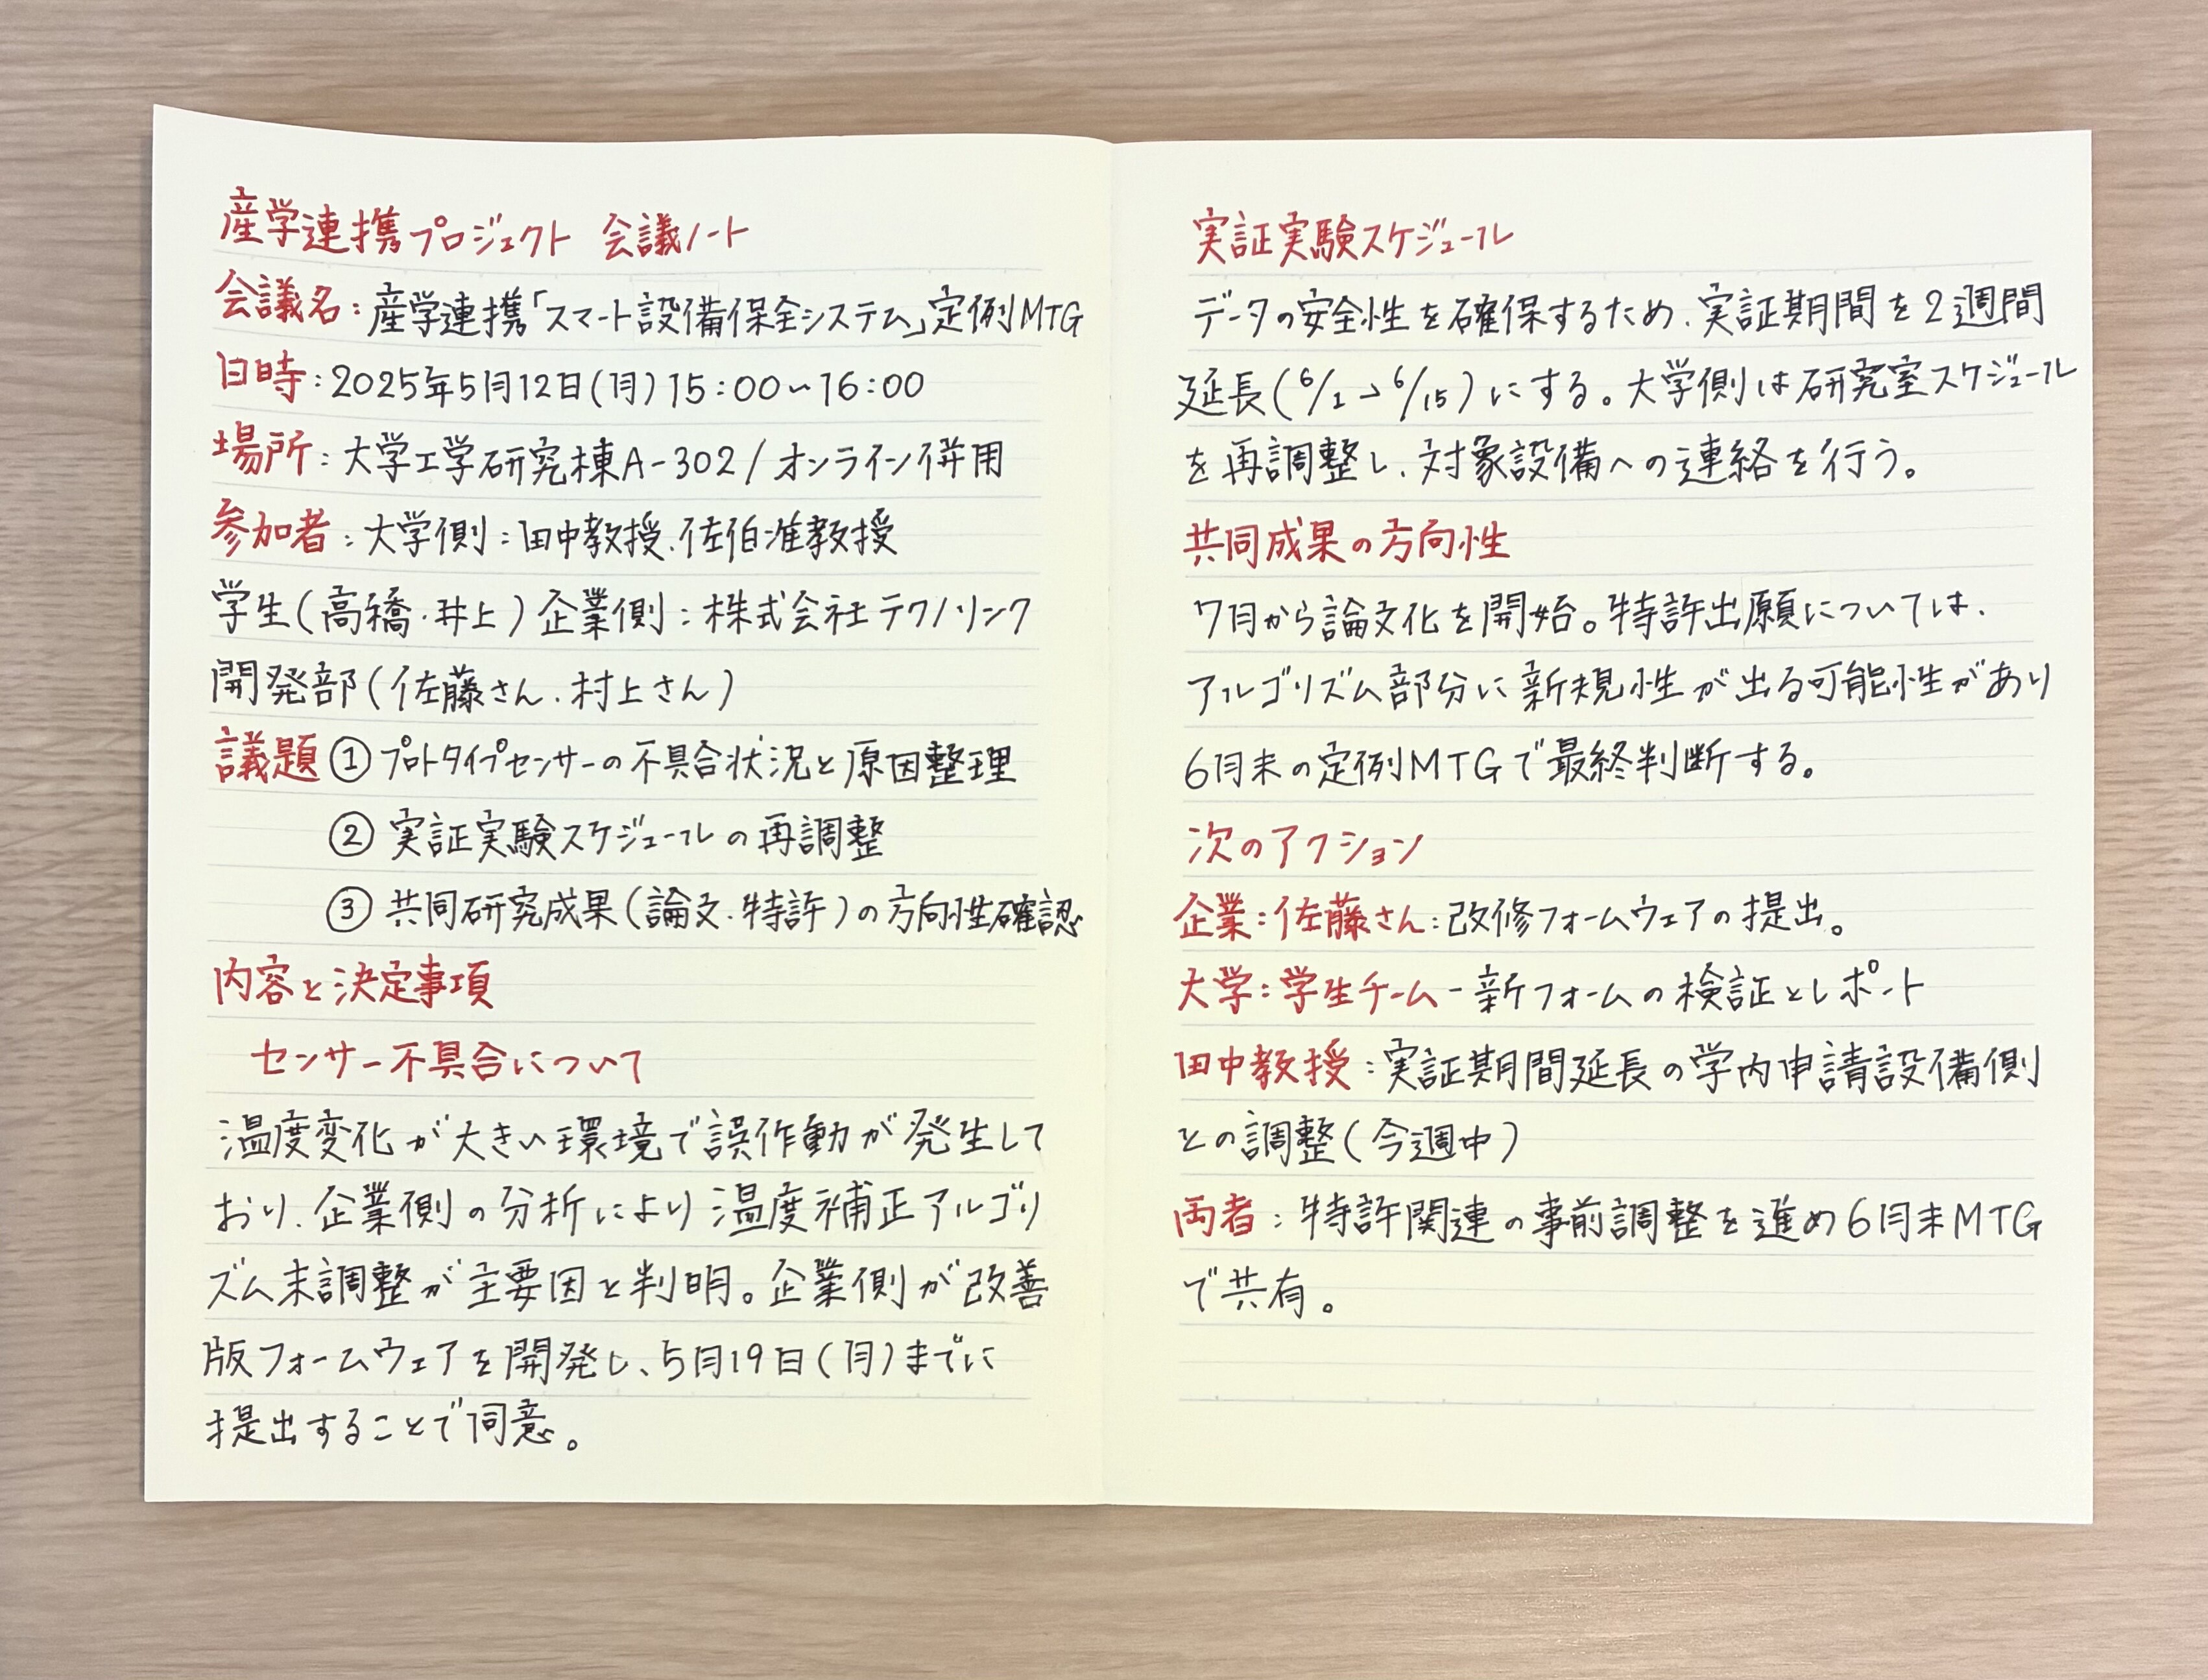 産学連携プロジェクト 会議ノート
会議名:産学連携「スマート設備保全システム」定例MTG
日時:2025年5月12日(月)15:00~16:00
場所:大学工学研究棟A-302/オンライン併用
参加者:大学側:田中教授、佐伯准教授
学生(高橋・井上)企業側:株式会社テクノリンク
開発部(佐藤さん、村上さん)
議題①プロトタイプセンサーの不具合状況と原因整理
②実証実験スケジュールの再調整
③共同研究成果(論文、特許)の方向性確認
内容と決定事項
センサー不具合について
温度変化が大きい環境で誤作動が発生して
おり、企業側の分析により温度補正アルゴリ
ズム未調整が主要因と判明。企業側が改善
版フォームウェアを開発し、5月19日(月)までに
提出することで同意。
実証実験スケジュール
データの安全性を確保するため、実証期間を2週間
延長(6/1→6/15)にする。大学側は研究室スケジュール
を再調整し、対象設備への連絡を行う。
共同成果の方向性
7月から論文化を開始。特許出願については、
アルゴリズム部分に新規性が出る可能性があり
6月末の定例MTGで最終判断する。
次のアクション
企業:佐藤さん:改修フォームウェアの提出。
大学:学生チーム-新フォームの検証とレポート
田中教授:実証期間延長の学内申請設備側
との調整(今週中)
両者:特許関連の事前調整を進め6月末MTG
で共有。